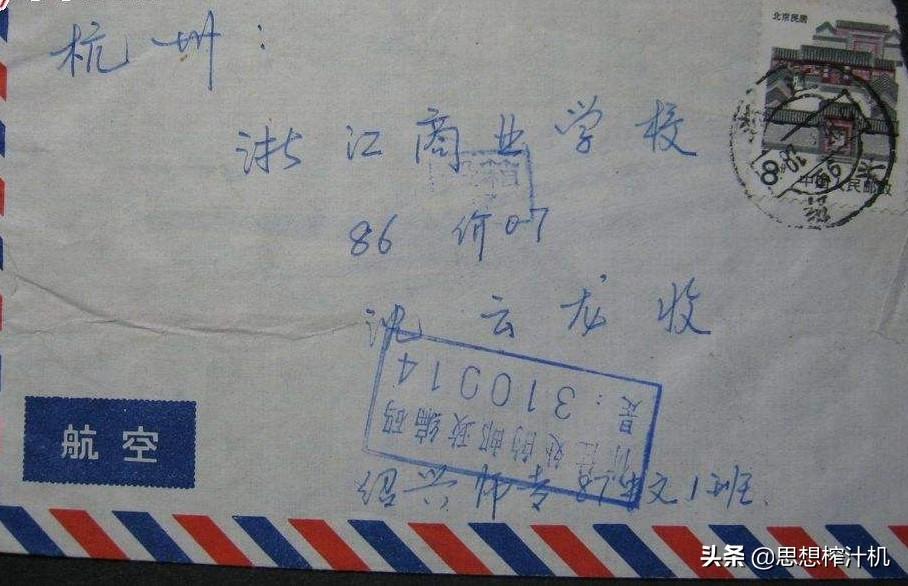 杭州：
北京民居
浙江商业学校
中国人民邮政
86 价07
沈云龙收
310014
是：
所在处的邮政编码
航空
绍兴师专
文1班
头条 @思想榨汁机